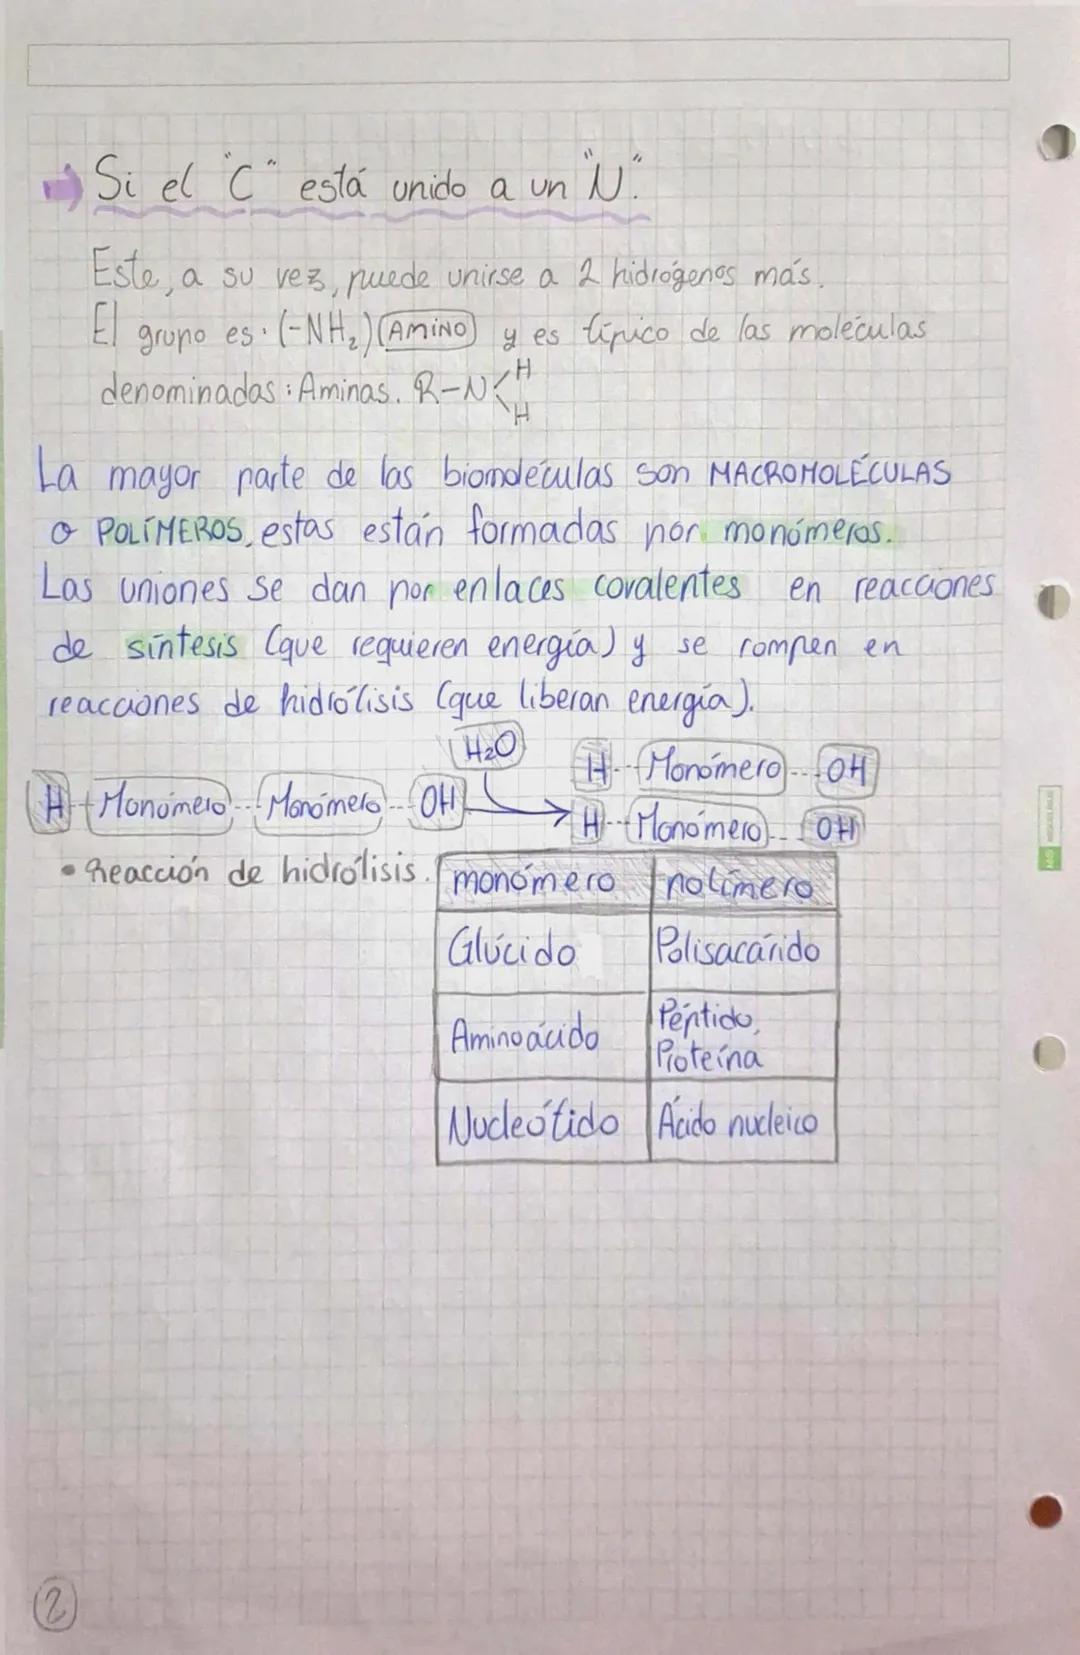 Si el "C" está unido a un "N".
Este, a su vez, puede unirse a 2 hidrógenos más.
El grupo es: (-NH₂) (AMINO) y es típico de las moléculas
denominadas: Aminas. R-N<H
H
La mayor parte de las biomoléculas son MACROMOLÉCULAS
o POLÍMEROS, estas están formadas por monómeros.
Las uniones se dan por enlaces covalentes en reacciones
de síntesis (que requieren energía) y se rompen en
reacciones de hidrólisis (que liberan energía).
H₂O
H Monómero OH
H Monómero Monómero OH
H Monómero OH
• Reacción de hidrólisis.
monómero polímero
Glúcido Polisacárido
Aminoácido Péptido,
Proteína
Nucleótido Ácido nucleico
2